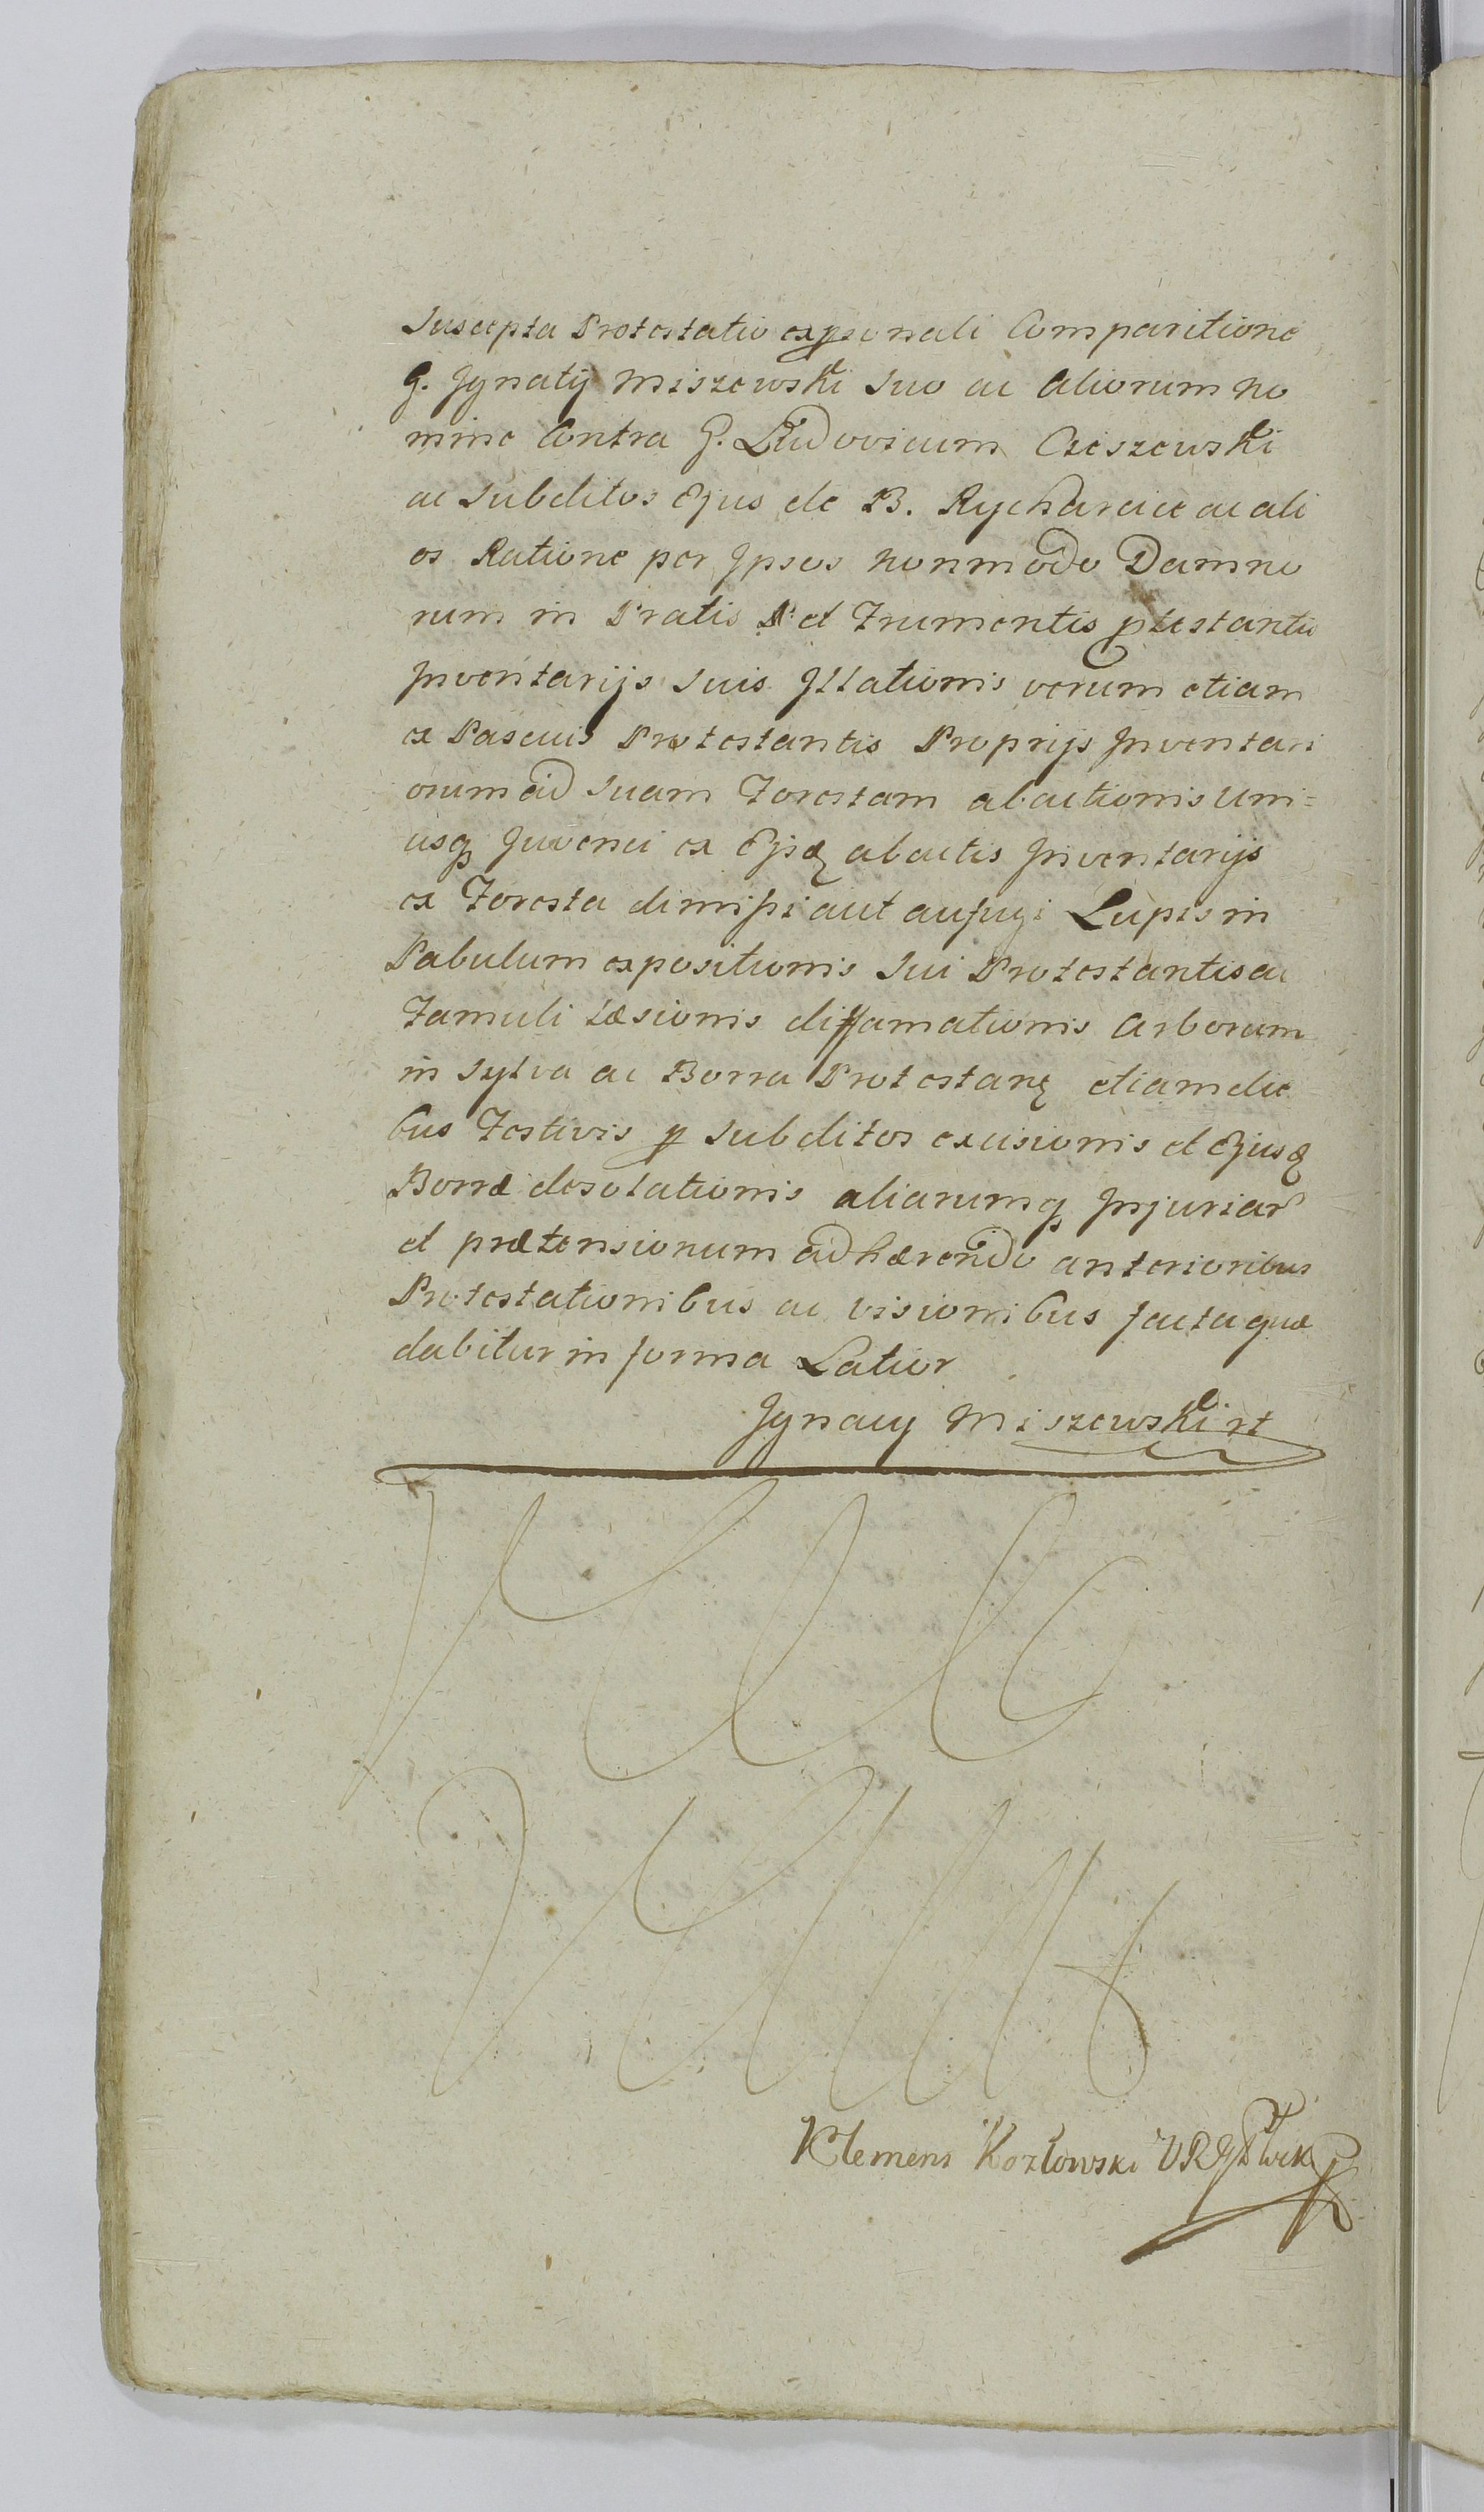 Suscepta Protestatio ex psonali Comparitione
G. Ignatij Miszewski suo ac aliorum no
mine Contra G. Ludovicum Cieszewski
ac Subditos Ejus de B. Rycharcice ac ali
os Ratione per Ipsos nonmodo Damno
rum in Pratis et Frumentis ptestantis
Inventarijs suis Illationis verum etiam
ex Pascuis Protestantis Proprijs Inventari
orum ad suam Forestam abactionis Uni=
usq Juvenci ex Ejsd abactis Inventarijs
ex Foresta dimissi aut aufugi Lupis in
Pabulum expositionis Sui Protestantis ac
Famuli læsionis diffamationis Arborum
in Sylva ac Borra Protestans etiam die
bus Festivis p Subditos excisionis et Ejusd
Borræ desolationis aliarumq Injuriar
et prætensionum adhærendo anterioribus
Protestationibus ac visionibus facta quæ
dabitur in forma Latior
Ignacy Miszewski
Klemens Kozłowski